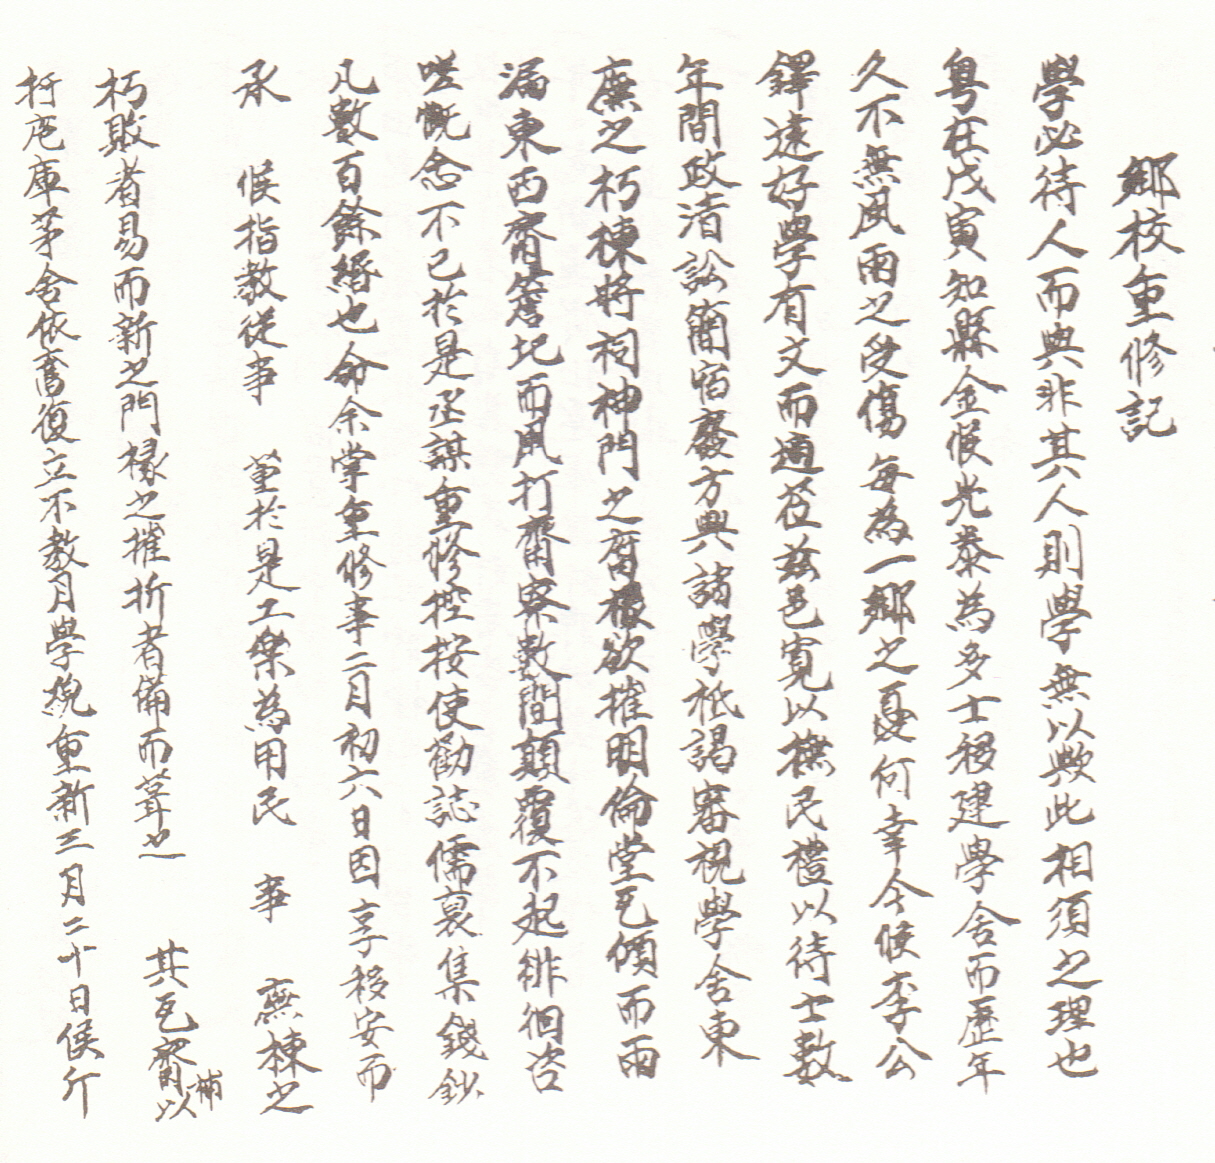 鄉校重修記
學必待人而興非其人則學無以興此相須之理也
粤在戊寅知縣金侯光泰為多士移建學舍而歷年
久不無風雨之受傷每為一鄉之憂何幸今候李公
鐸遠好學有文而適莅茲邑寬以撫民禮以待士數
年間政清訟簡宿廢方興諸學祗謁審視學舍東
廡之朽棟將祠神門之腐椽欲摧明倫堂瓦傾而雨
漏東西齋簷圮而風打齋寮數間顛覆不起徘徊咨
嗟慨念不已於是丞謀重修控按使勸誌儒裒集錢鈔
凡數百餘緡也命余掌重修事二月初六日因享移安而
承 候指教從事 董於是工樂為用民 事 廡棟之
朽敗者易而新之門椽之摧折者備而葺之 其瓦齋以補
庖庫茅舍依舊復立不數月學貌重新三月二十日候斤